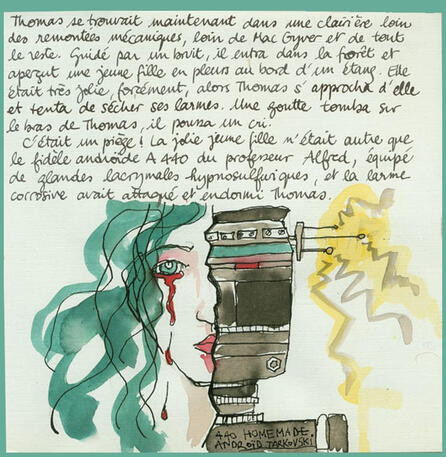 Thomas se trouvait maintenant dans une clairière loin
des remontées mécaniques, loin de Mac Gyver et de tout
le reste. Guidé par un bruit, il entra dans la forêt et
aperçut une jeune fille en pleurs au bord d'un étang. Elle
était très jolie, forcément, alors Thomas s'approcha d'elle
et tenta de sécher ses larmes. Une goutte tomba sur
le bras de Thomas, il poussa un cri.
C'était un piège ! La jolie jeune fille n'était autre que
le fidèle androïde A 440 du professeur Alfred, équipé
de glandes lacrymales hypnosulfuriques, et la larme
corrosive avait attaqué et endormi Thomas.
440 HOMEMADE.
ANDROÏD TARKOVSKI